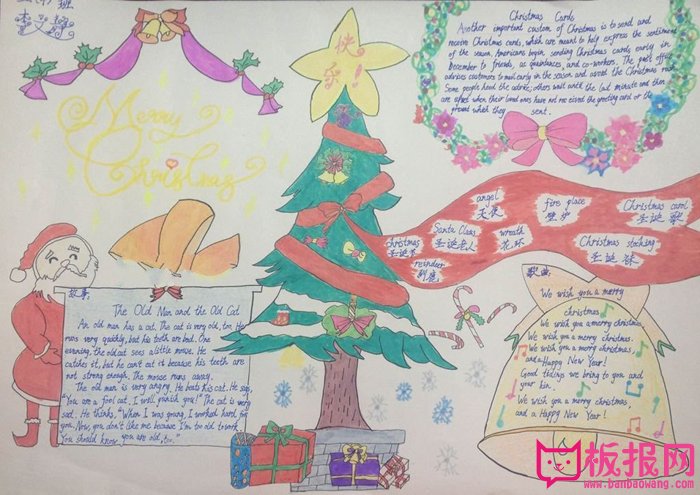 快
乐!
Merry
Christmas
Christmas Cards
Another important custom of Christmas is to send and
receive Christmas cards, which are meant to help express the sentiment
of the season. Americans begin sending Christmas cards early in
December to friends, and co-workers. The post office
advises customers to mail early in the season and avoid the Christmas rush.
Some people heed the advice; others wait until the last minute and then
are upset when their loved ones have not received the greeting card or the
present which they sent.
angel
天使
fire place
壁炉
Christmas carol
圣诞歌
Santa Claus
圣诞老人
wreath
花环
christmas
圣诞节
Christmas stocking
圣诞袜
reindeer
驯鹿
故事:
The Old Man and the Old Cat
An old man has a cat. The cat is very old, too. He
runs very quickly, but his teeth are bad. One
evening, the old cat sees a little mouse. He
catches it, but he can't eat it because his teeth are
not strong enough. The mouse runs away.
The old man is very angry. He beats his cat. He says,
"You are a fool cat, I will punish you!" The cat is very
sad. He thinks, "When I was young, I worked hard for
you. Now, you don't like me because I'm too old to work.
You should know, you are old, too."
歌曲:
We wish you a merry
christmas
We wish you a merry christmas
We wish you a merry christmas
and a Happy New Year!
Good tidings we bring to you and
your kin.
We wish you a merry christmas
and a Happy New Year!
板报网
www.banbaowang.com